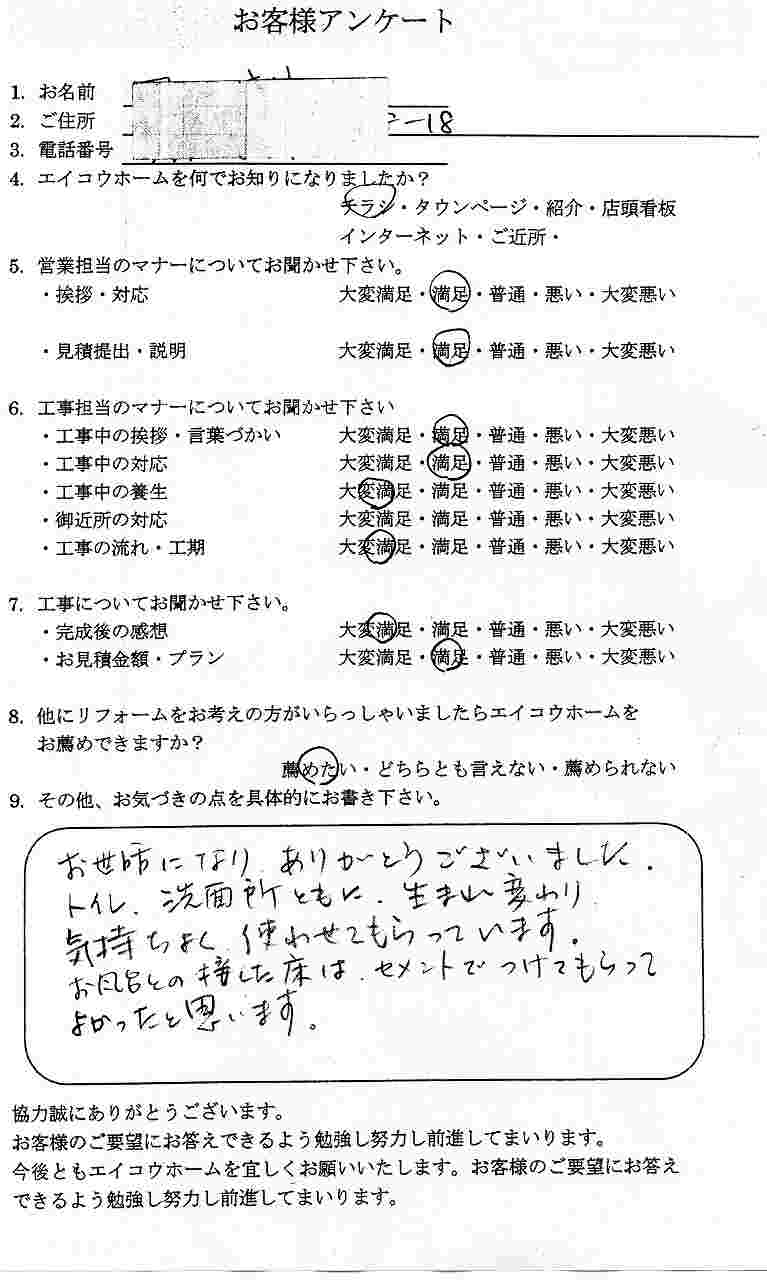 お客様アンケート
1. お名前
2. ご住所 -18
3. 電話番号
4. エイコウホームを何でお知りになりましたか？
チラシ・タウンページ・紹介・店頭看板
インターネット・ご近所・
5. 営業担当のマナーについてお聞かせ下さい。
・挨拶・対応 大変満足・満足・普通・悪い・大変悪い
・見積提出・説明 大変満足・満足・普通・悪い・大変悪い
6. 工事担当のマナーについてお聞かせ下さい
・工事中の挨拶・言葉づかい 大変満足・満足・普通・悪い・大変悪い
・工事中の対応 大変満足・満足・普通・悪い・大変悪い
・工事中の養生 大変満足・満足・普通・悪い・大変悪い
・御近所の対応 大変満足・満足・普通・悪い・大変悪い
・工事の流れ・工期 大変満足・満足・普通・悪い・大変悪い
7. 工事についてお聞かせ下さい。
・完成後の感想 大変満足・満足・普通・悪い・大変悪い
・お見積金額・プラン 大変満足・満足・普通・悪い・大変悪い
8. 他にリフォームをお考えの方がいらっしゃいましたらエイコウホームを
お薦めできますか？
薦めたい・どちらとも言えない・薦められない
9. その他、お気づきの点を具体的にお書き下さい。
お世師になり、ありがとうございました。
トイレ、洗面所ともに、生まれ変わり
気持ちよく、使わせてもらっています。
お風呂との接した床は、セメントでつけてもらって
よかったと思います。
協力誠にありがとうございます。
お客様のご要望にお答えできるよう勉強し努力し前進してまいります。
今後ともエイコウホームを宜しくお願いいたします。お客様のご要望にお答え
できるよう勉強し努力し前進してまいります。